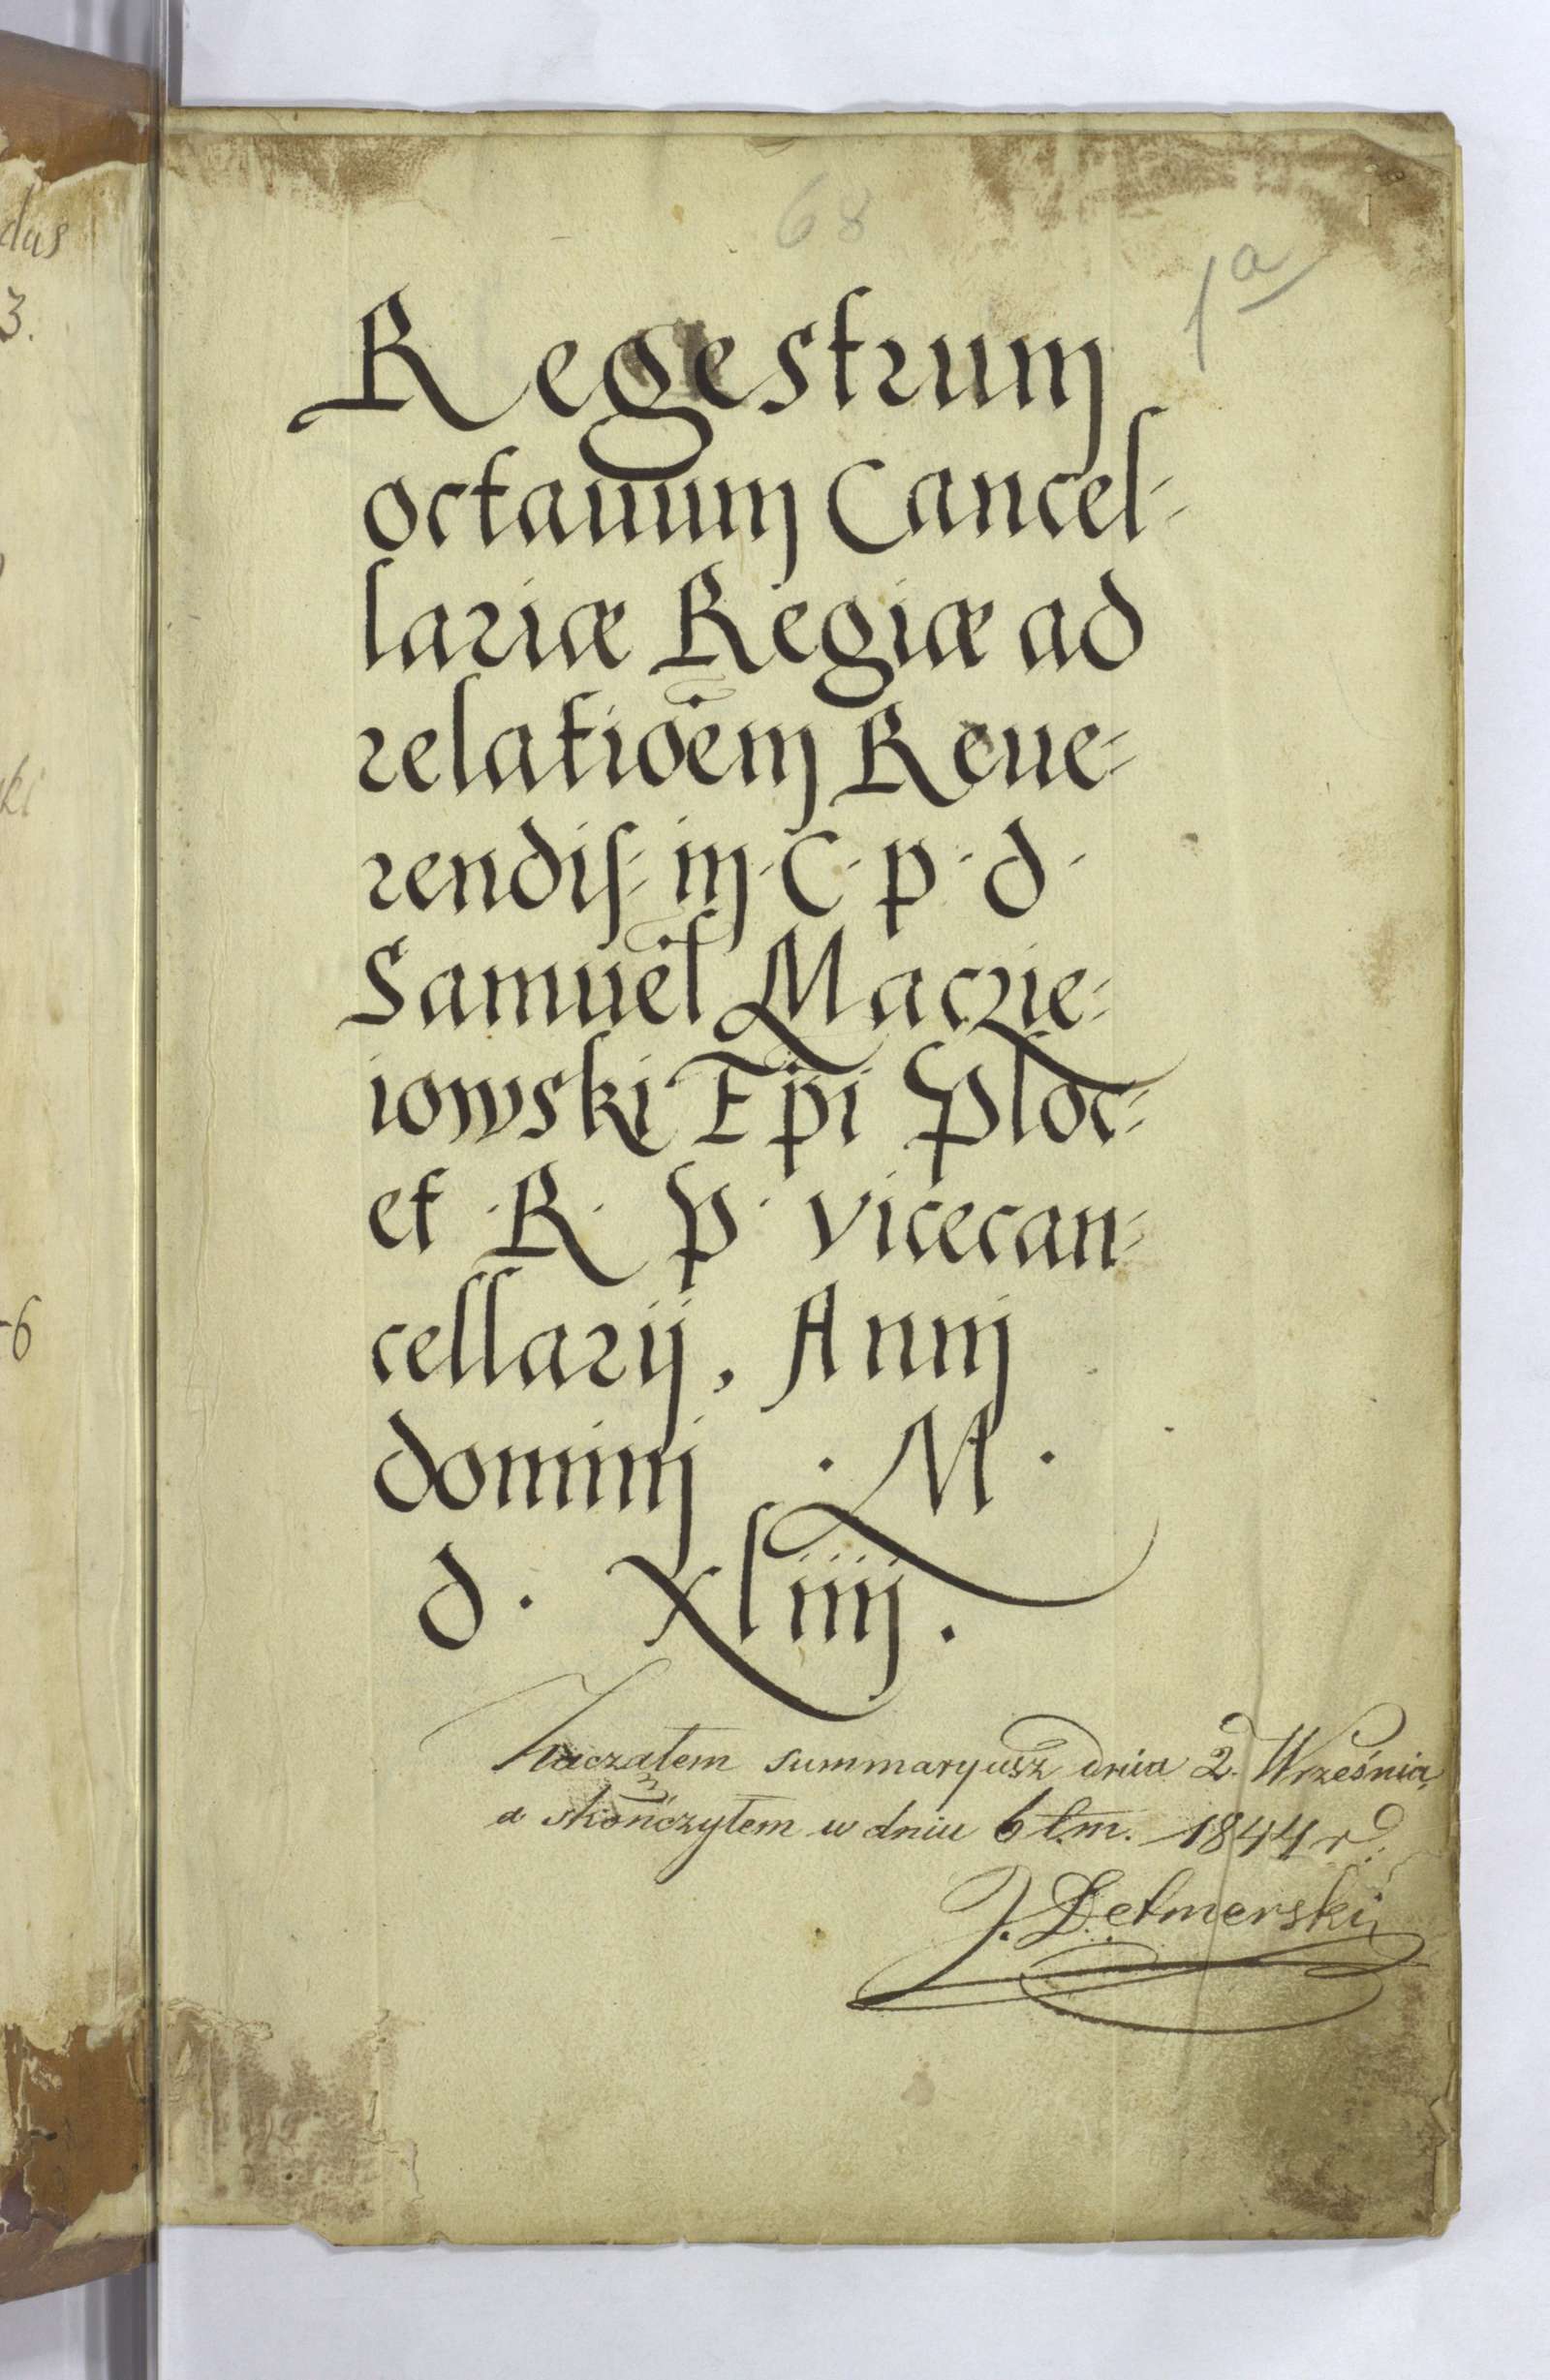 68
1a
Regestrum
octauum Cancel-
lariæ Regiæ ad
relatioēm Reue-
rendis- in C. p. d.
Samuel Maczie-
iowski Epi Ploc-
et .R. P. vicecan-
cellarij, Annj
dominj .M.
d. xliiij.
Zacząłem summaryusz dnia 2. Września
a skończyłem w dniu 6 t.m. 1844 r.
J. Detmerski
das
3.
ki
6